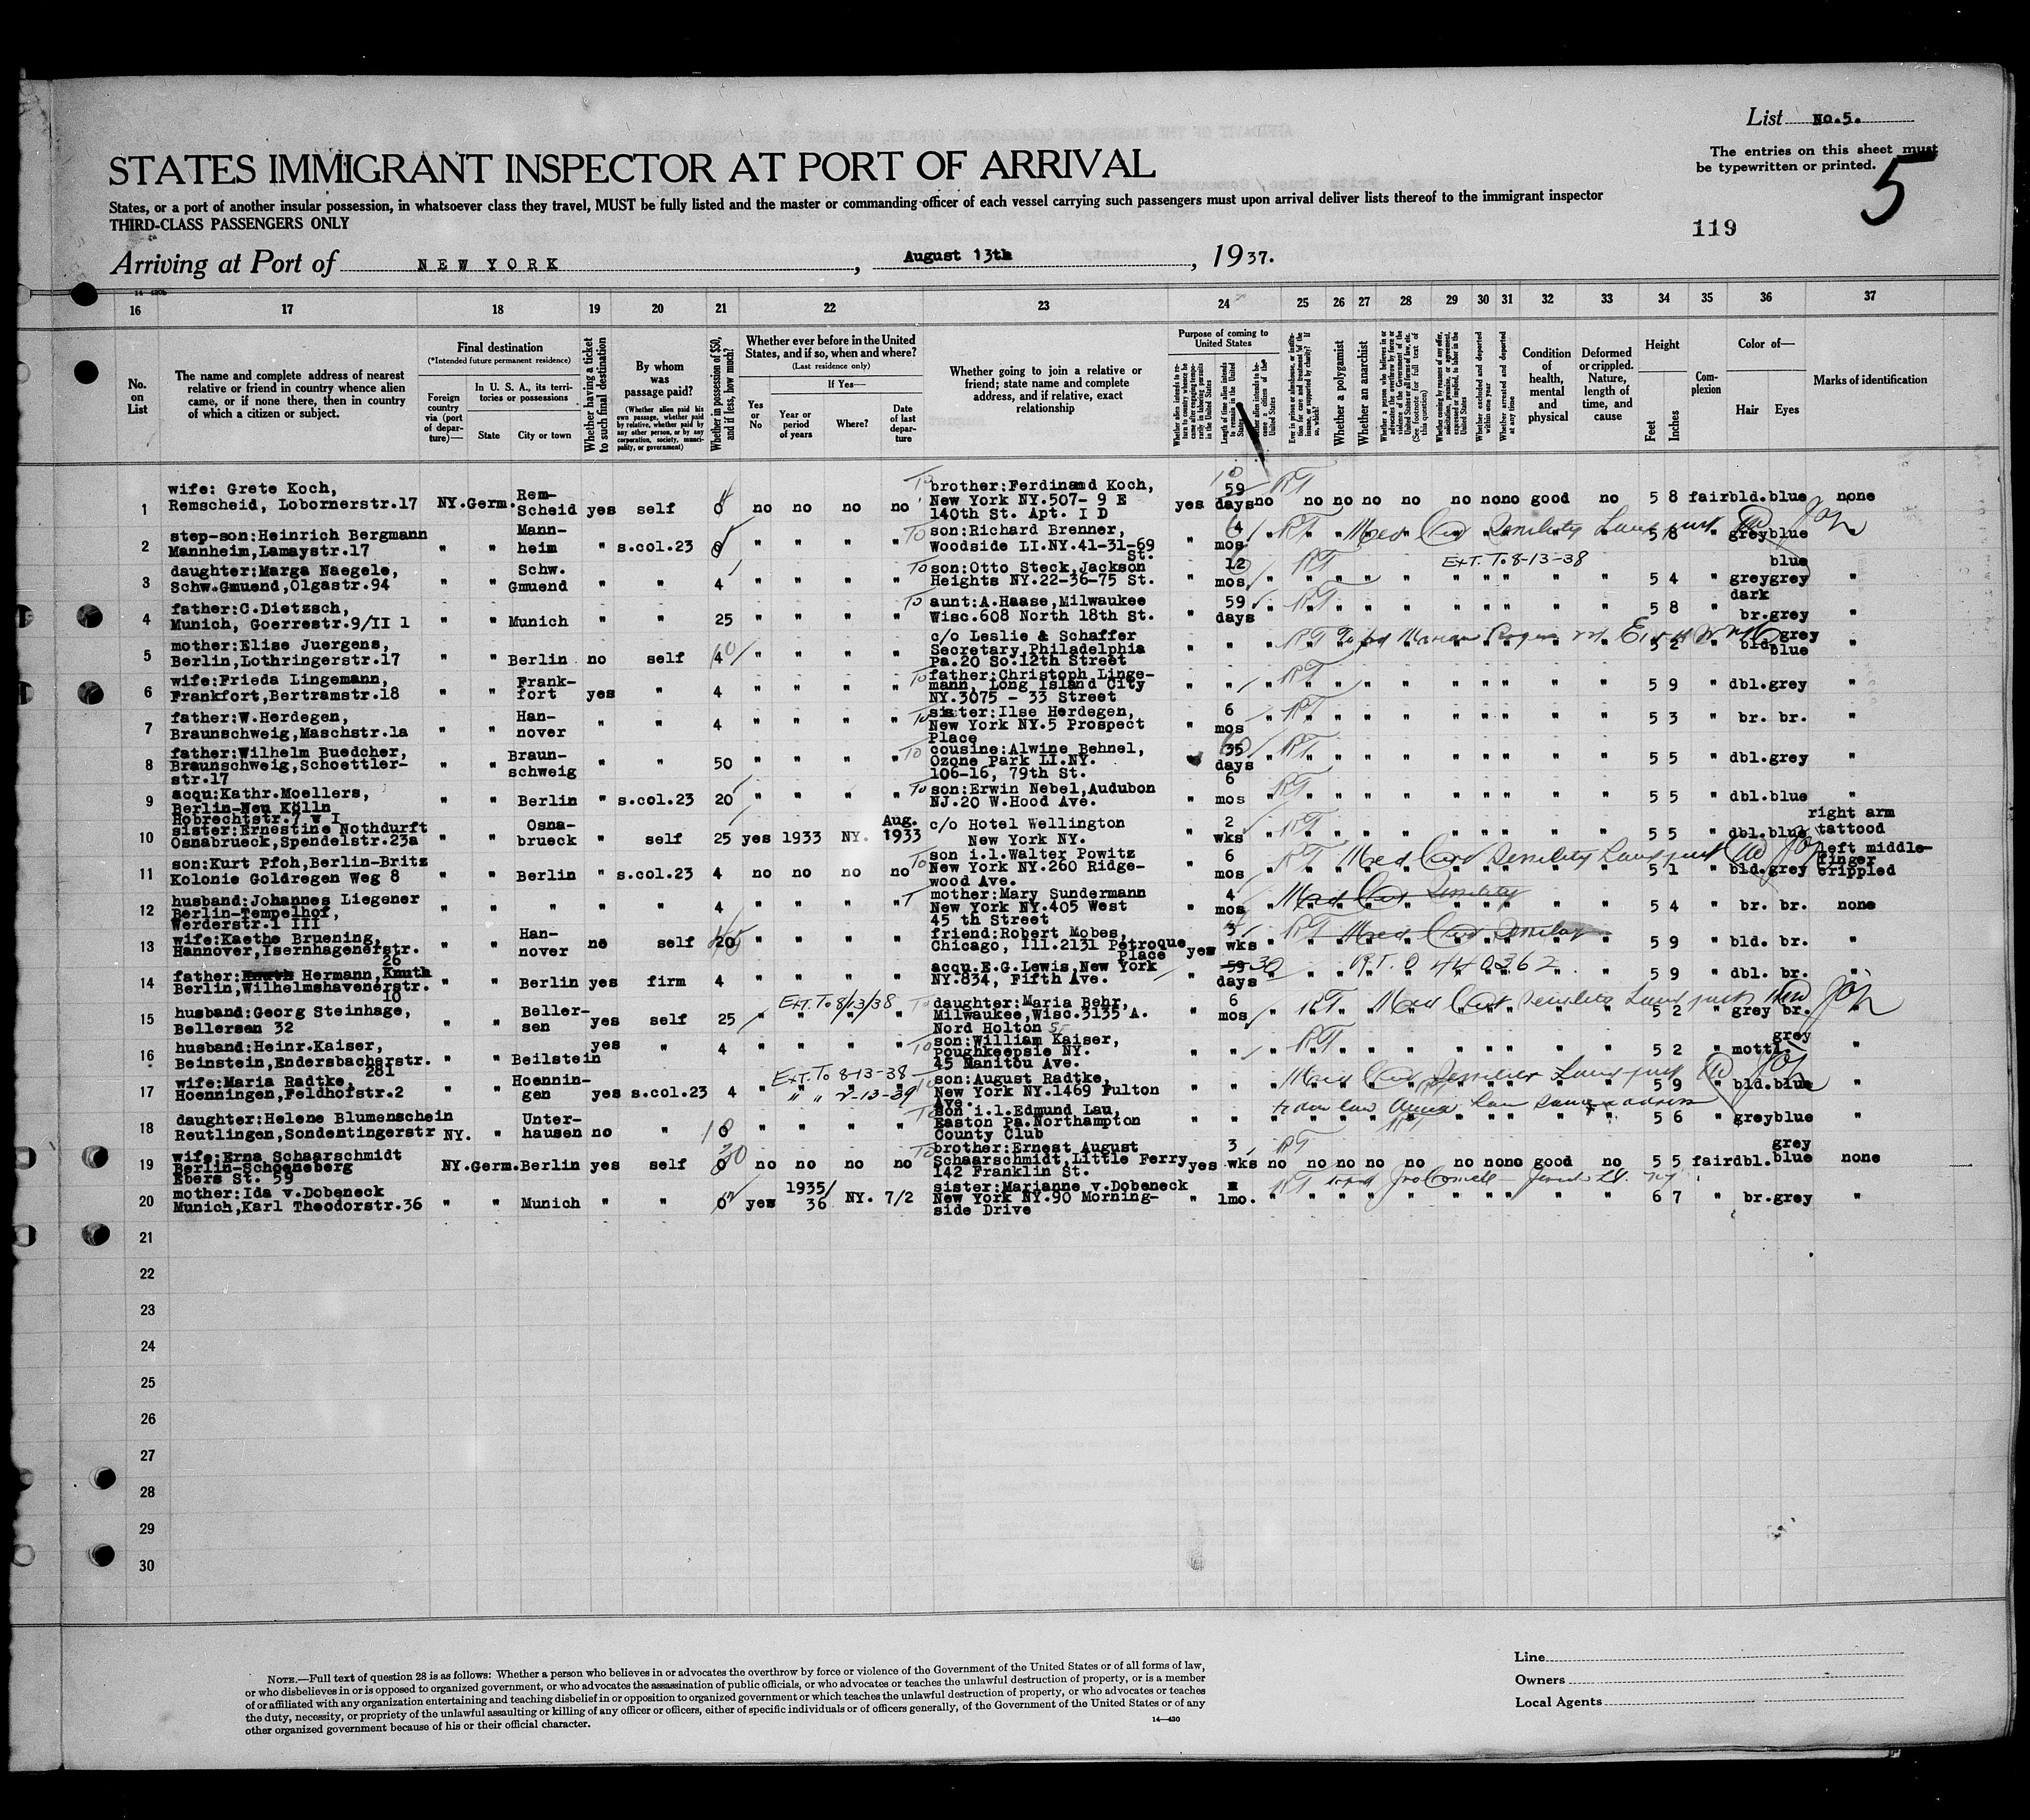 List No.5.
The entries on this sheet must
be typewritten or printed.
5
STATES IMMIGRANT INSPECTOR AT PORT OF ARRIVAL
States, or a port of another insular possession, in whatsoever class they travel, MUST be fully listed and the master or commanding officer of each vessel carrying such passengers must upon arrival deliver lists thereof to the immigrant inspector
THIRD-CLASS PASSENGERS ONLY
119
Arriving at Port of NEW YORK, August 13th, 1937.
16 17 18 19 20 21 22 23 24 25 26 27 28 29 30 31 32 33 34 35 36 37
No. on List
The name and complete address of nearest relative or friend in country whence alien came, or if none there, then in country of which a citizen or subject.
Final destination
(*Intended future permanent residence)
Foreign country via (port of departure)—
In U. S. A., its territories or possessions
State
City or town
Whether having a ticket to such final destination
By whom was passage paid?
(Whether alien paid his own passage, whether paid by relative, whether paid by any other person, or by any corporation, society, municipality, or government)
Whether in possession of $50, and if less, how much?
Whether ever before in the United States, and if so, when and where?
(Last residence only)
If Yes—
Yes or No
Year or period of years
Where?
Date of last departure
Whether going to join a relative or friend; state name and complete address, and if relative, exact relationship
Purpose of coming to United States
Whether a polygamist
Whether an anarchist
Whether excluded and deported within one year
Whether arrested and deported at any time
Condition of health, mental and physical
Deformed or crippled. Nature, length of time, and cause
Height
Feet
Inches
Complexion
Color of—
Hair
Eyes
Marks of identification
1 wife: Grete Koch, Remscheid, Lobornerstr.17 NY.Germ. Rem-Scheid yes self 0 no no no no brother:Ferdinand Koch, New York NY.507- 9 E 140th St. Apt. I D yes 59 days no RT no no no no no no no good no 5 8 fair bld. blue none
2 step-son:Heinrich Bergmann Mannheim,Lamaystr.17 " " Mann-heim " s.col.23 0 " " " " To son:Richard Brenner, Woodside LI.NY.41-31-69 St. " 4 mos " RT Med Cert Senility 5 8 " grey blue
3 daughter:Marga Naegele, Schw.Gmuend,Olgastr.94 " " Schw. Gmuend " " 4 " " " " To son:Otto Steck,Jackson Heights NY.22-36-75 St. " 12 mos. " RT EXT. To 8-13-38 5 4 " grey blue grey "
4 father:C.Dietzsch, Munich, Goerrestr.9/II l " " Munich " " 25 " " " " To aunt:A.Haase,Milwaukee Wisc.608 North 18th St. " 59 days " RT 5 8 " dark br. grey "
5 mother:Elise Juergens, Berlin,Lothringerstr.17 " " Berlin no self 4 " " " " c/o Leslie & Schaffer Secretary,Philadelphia Pa.20 So.12th Street " " " RT 5 2 " bld. grey blue "
6 wife:Frieda Lingemann, Frankfort,Bertramstr.18 " " Frank-fort yes " 4 " " " " To father:Christoph Linge-mann, Long Island City NY.3075 - 33 Street " " " RT 5 9 " dbl. grey "
7 father:W.Herdegen, Braunschweig,Maschstr.1a " " Han-nover " " 4 " " " " To sister:Ilse Herdegen, New York NY.5 Prospect Place " 6 mos " RT 5 3 " br. br. "
8 father:Wilhelm Buedcher, Braunschweig,Schoettler-str.17 " " Braun-schweig " " 50 " " " " To cousine:Alwine Behnel, Ozone Park LI.NY. 106-16, 79th St. 35 days " RT 5 5 " dbl. grey "
9 acqu:Kathr.Moellers, Berlin-Neu Kölln Hobrechtstr.7 v I " " Berlin " s.col.23 20 " " " " To son:Erwin Nebel,Audubon NJ.20 W.Hood Ave. " 6 mos " RT 5 5 " dbl. blue "
10 sister:Ernestine Nothdurft Osnabrueck,Spendelstr.23a " " Osna-brueck " self 25 yes 1933 NY. Aug. 1933 c/o Hotel Wellington New York NY. " 2 wks " RT 5 5 " dbl. blue right arm tattood
11 son:Kurt Pfoh,Berlin-Britz Kolonie Goldregen Weg 8 " " Berlin " s.col.23 4 no no no no To son i.l.Walter Powitz New York NY.260 Ridge-wood Ave. " 6 mos " RT Med Cert Senility 5 1 " bld. grey left middle-finger crippled
12 husband:Johannes Liegener Berlin-Tempelhof, Werderstr.1 III " " " " " 4 " " " " T mother:Mary Sundermann New York NY.405 West 45 th Street " 4 mos " Med Cert Senility 5 4 " br. br. none
13 wife:Kaethe Bruening, Hannover,Isernhagenerstr. 26 " " Han-nover no self 20 " " " " friend:Robert Mobes, Chicago, Ill.2131 Petroque Place yes 3 wks " RT Med Cert Senility 5 9 " bld. br. "
14 father: Hermann,Knuth Berlin,Wilhelmshavenerstr. 10 " " Berlin yes firm 4 " " " " acqu.E.G.Lewis,New York NY.834, Fifth Ave. 59 30 days " R.T. 0 440362 5 9 " dbl. br. "
15 husband:Georg Steinhage, Bellersen 32 " " Beller-sen yes self 25 EXT. To 8/13/38 daughter:Maria Behr, Milwaukee,Wisc.3135 A. Nord Holton St " 6 mos " RT Med Cert Senility 5 2 " grey br. "
16 husband:Heinr.Kaiser, Beinstein,Endersbacherstr. 281 " " Beilstein yes " 4 " " " " To son:William Kaiser, Poughkeepsie NY. 45 Manitou Ave. " " " RT 5 2 " mottl. grey "
17 wife:Maria Radtke, Hoenningen,Feldhofstr.2 " " Hoennin-gen yes s.col.23 4 EXT. To 8-13-38 " " 2-13-39 son:August Radtke, New York NY.1469 Fulton Ave. " " " Med Cert 5 9 " bld. blue "
18 daughter:Helene Blumenschein Reutlingen,Sondentingerstr NY. " Unter-hausen no " 0 " " " " To son i.l.Edmund Lau, Easton Pa.Northampton County Club " " " 5 6 " grey blue "
19 wife:Erna Schaarschmidt Berlin-Schoeneberg Ebers St. 59 NY.Germ. Berlin yes self 0 30 no no no no To brother:Ernest August Schaarschmidt,Little Ferry 142 Franklin St. yes 3 wks no RT no no no no no no no good no 5 5 fair dbl. grey blue none
20 mother:Ida v.Dobeneck Munich,Karl Theodorstr.36 " " Munich " " 0 yes 1935/36 NY. 7/2 sister:Marianne v.Dobeneck New York NY.90 Morning-side Drive " 1mo. " RT 6 7 " br. grey "
21
22
23
24
25
26
27
28
29
30
NOTE.—Full text of question 28 is as follows: Whether a person who believes in or advocates the overthrow by force or violence of the Government of the United States or of all forms of law,
or who disbelieves in or is opposed to organized government, or who advocates the assassination of public officials, or who advocates or teaches the unlawful destruction of property, or is a member
of or affiliated with any organization entertaining and teaching disbelief in or opposition to organized government or which teaches the unlawful destruction of property, or who advocates or teaches
the duty, necessity, or propriety of the unlawful assaulting or killing of any officer or officers, either of specific individuals or of officers generally, of the Government of the United States or of any
other organized government because of his or their official character.
14—430
Line
Owners
Local Agents